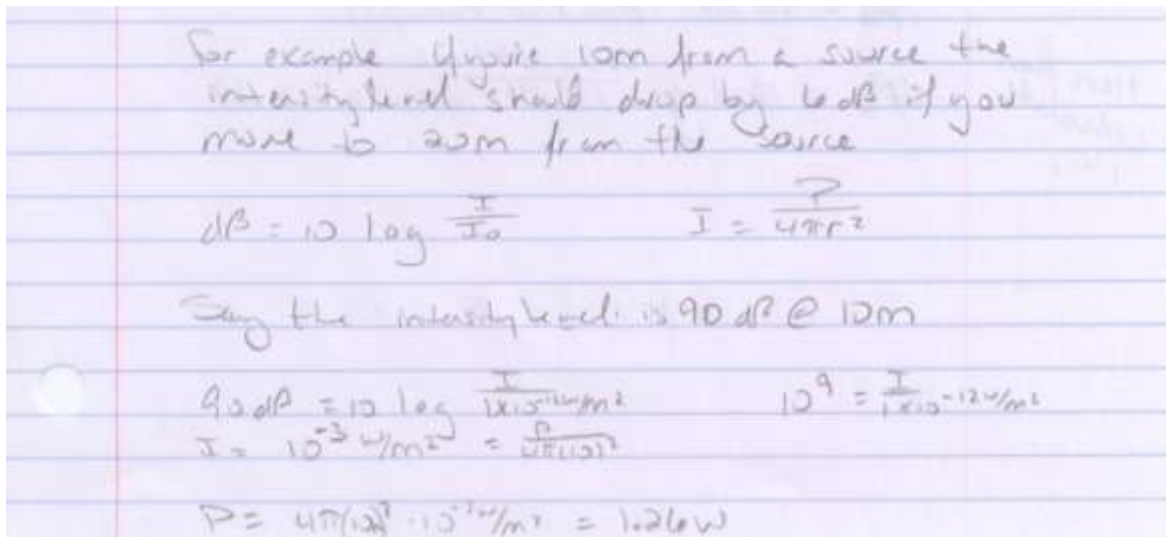 For example if you're 10m from a source the
intensity level should drop by 6 dB if you
move to 20m from the source
dB = 10 log I/I₀ I = P/4πr²
Say the intensity level is 90 dB @ 10m
90 dB = 10 log I/1x10⁻¹²w/m² 10⁹ = I/1x10⁻¹²w/m²
I = 10⁻³ w/m² = P/4π(10)²
P = 4π(10)² · 10⁻³w/m² = 1.26w